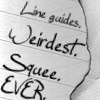 Line guides.
Weirdest.
Squee.
EVER.